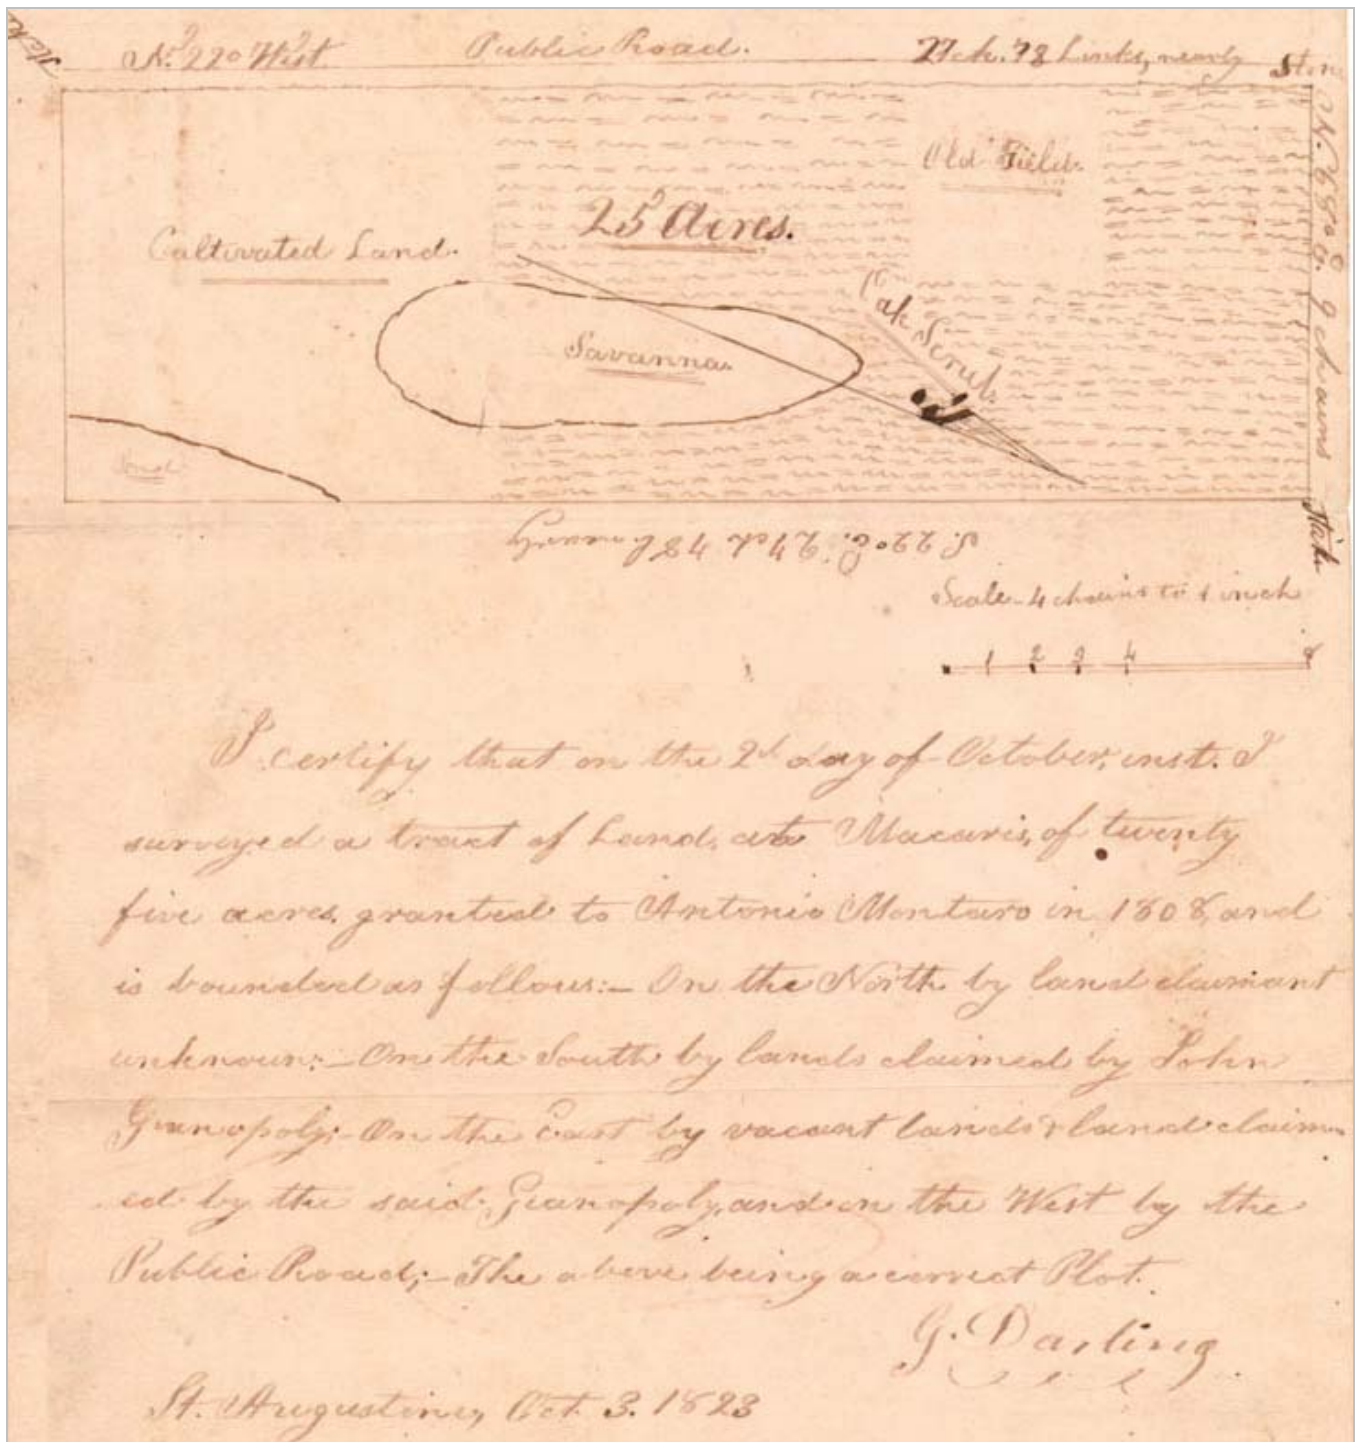 N. 22° West.
Public Road.
27 ch. 78 Links, nearly
Stone
Old Field.
25 Acres.
Caltivated Land.
Oak Scrub.
Savanna.
N. 68° E. 9 chains
Stake
S. 22° E. 27 ch 78 l. nearly
Scale - 4 chains to 1 inch
1 2 3 4 8
I certify that on the 2d day of October, inst. I
surveyed a tract of Land, at Macaris, of twenty
five acres, granted to Antonio Montaro in 1808, and
is bounded as follows:- On the North by land claimant
unknown:- On the South by lands claimed by John
Gianopoly;- On the East by vacant lands & land claim-
ed by the said Gianopoly, and on the West by the
Public Road;- The above being a correct Plot.
G. Darling
St. Augustine, Oct. 3. 1823